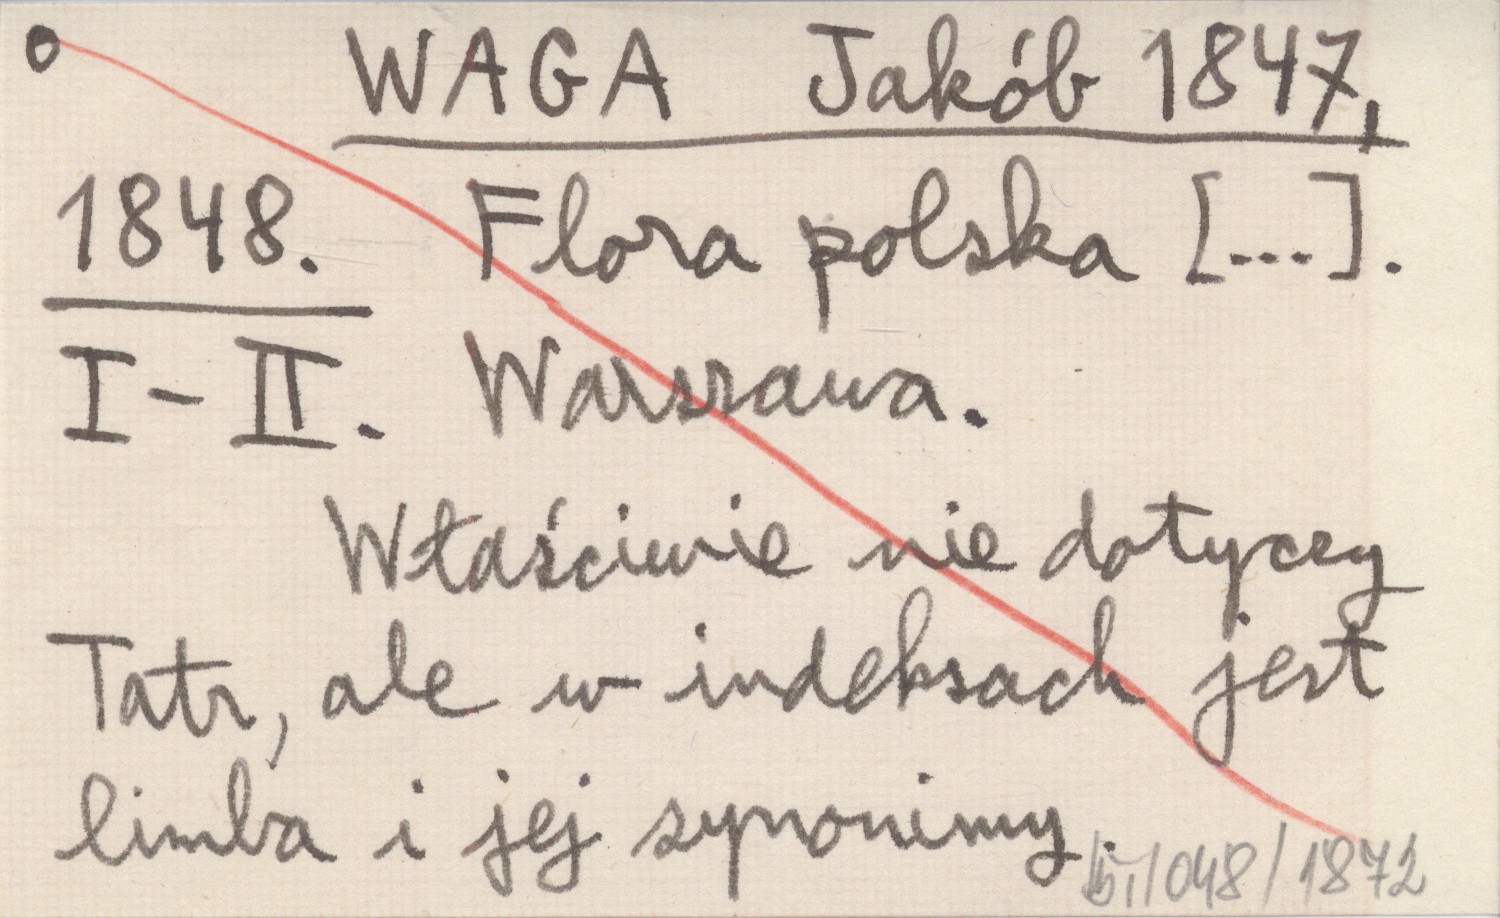 WAGA Jakób 1847,
1848. Flora polska [...].
I-II. Warszawa.
Właściwie nie dotyczy
Tatr, ale w indeksach jest
limba i jej synonimy.
/048/1872